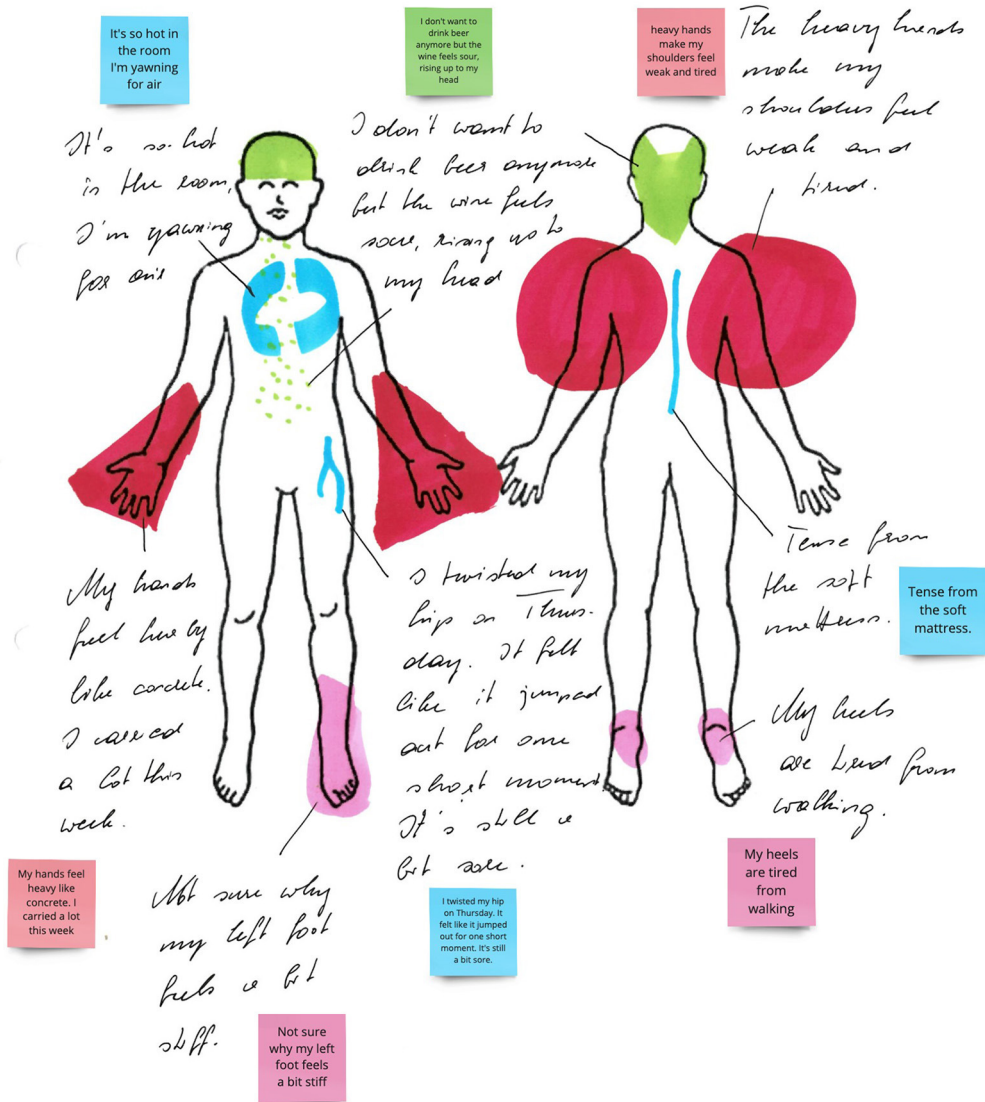 It's so hot in
the room
I'm yawning
for air
I don't want to
drink beer
anymore but the
wine feels sour,
rising up to my
head
heavy hands
make my
shoulders feel
weak and tired
The heavy hands
make my
shoulders feel
weak and
tired.
It's so hot
in the room,
I'm yawning
for air
I don't want to
drink beer anymore
but the wine feels
sour, rising up to
my head
My hands
feel heavy
like concrete.
I carried
a lot this
week.
I twisted my
hip on Thurs-
day. It felt
like it jumped
out for one
short moment.
It's still a
bit sore.
Tense from
the soft
mattress.
Tense from
the soft
mattress.
My heels
are tired from
walking.
My hands feel
heavy like
concrete. I
carried a lot
this week
Not sure why
my left foot
feels a bit
stiff.
I twisted my hip
on Thursday. It
felt like it jumped
out for one short
moment. It's still
a bit sore.
My heels
are tired
from
walking
Not sure
why my left
foot feels
a bit stiff